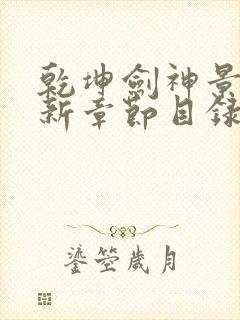 乾坤劍神景
新章節目錄
鎏箜歲月